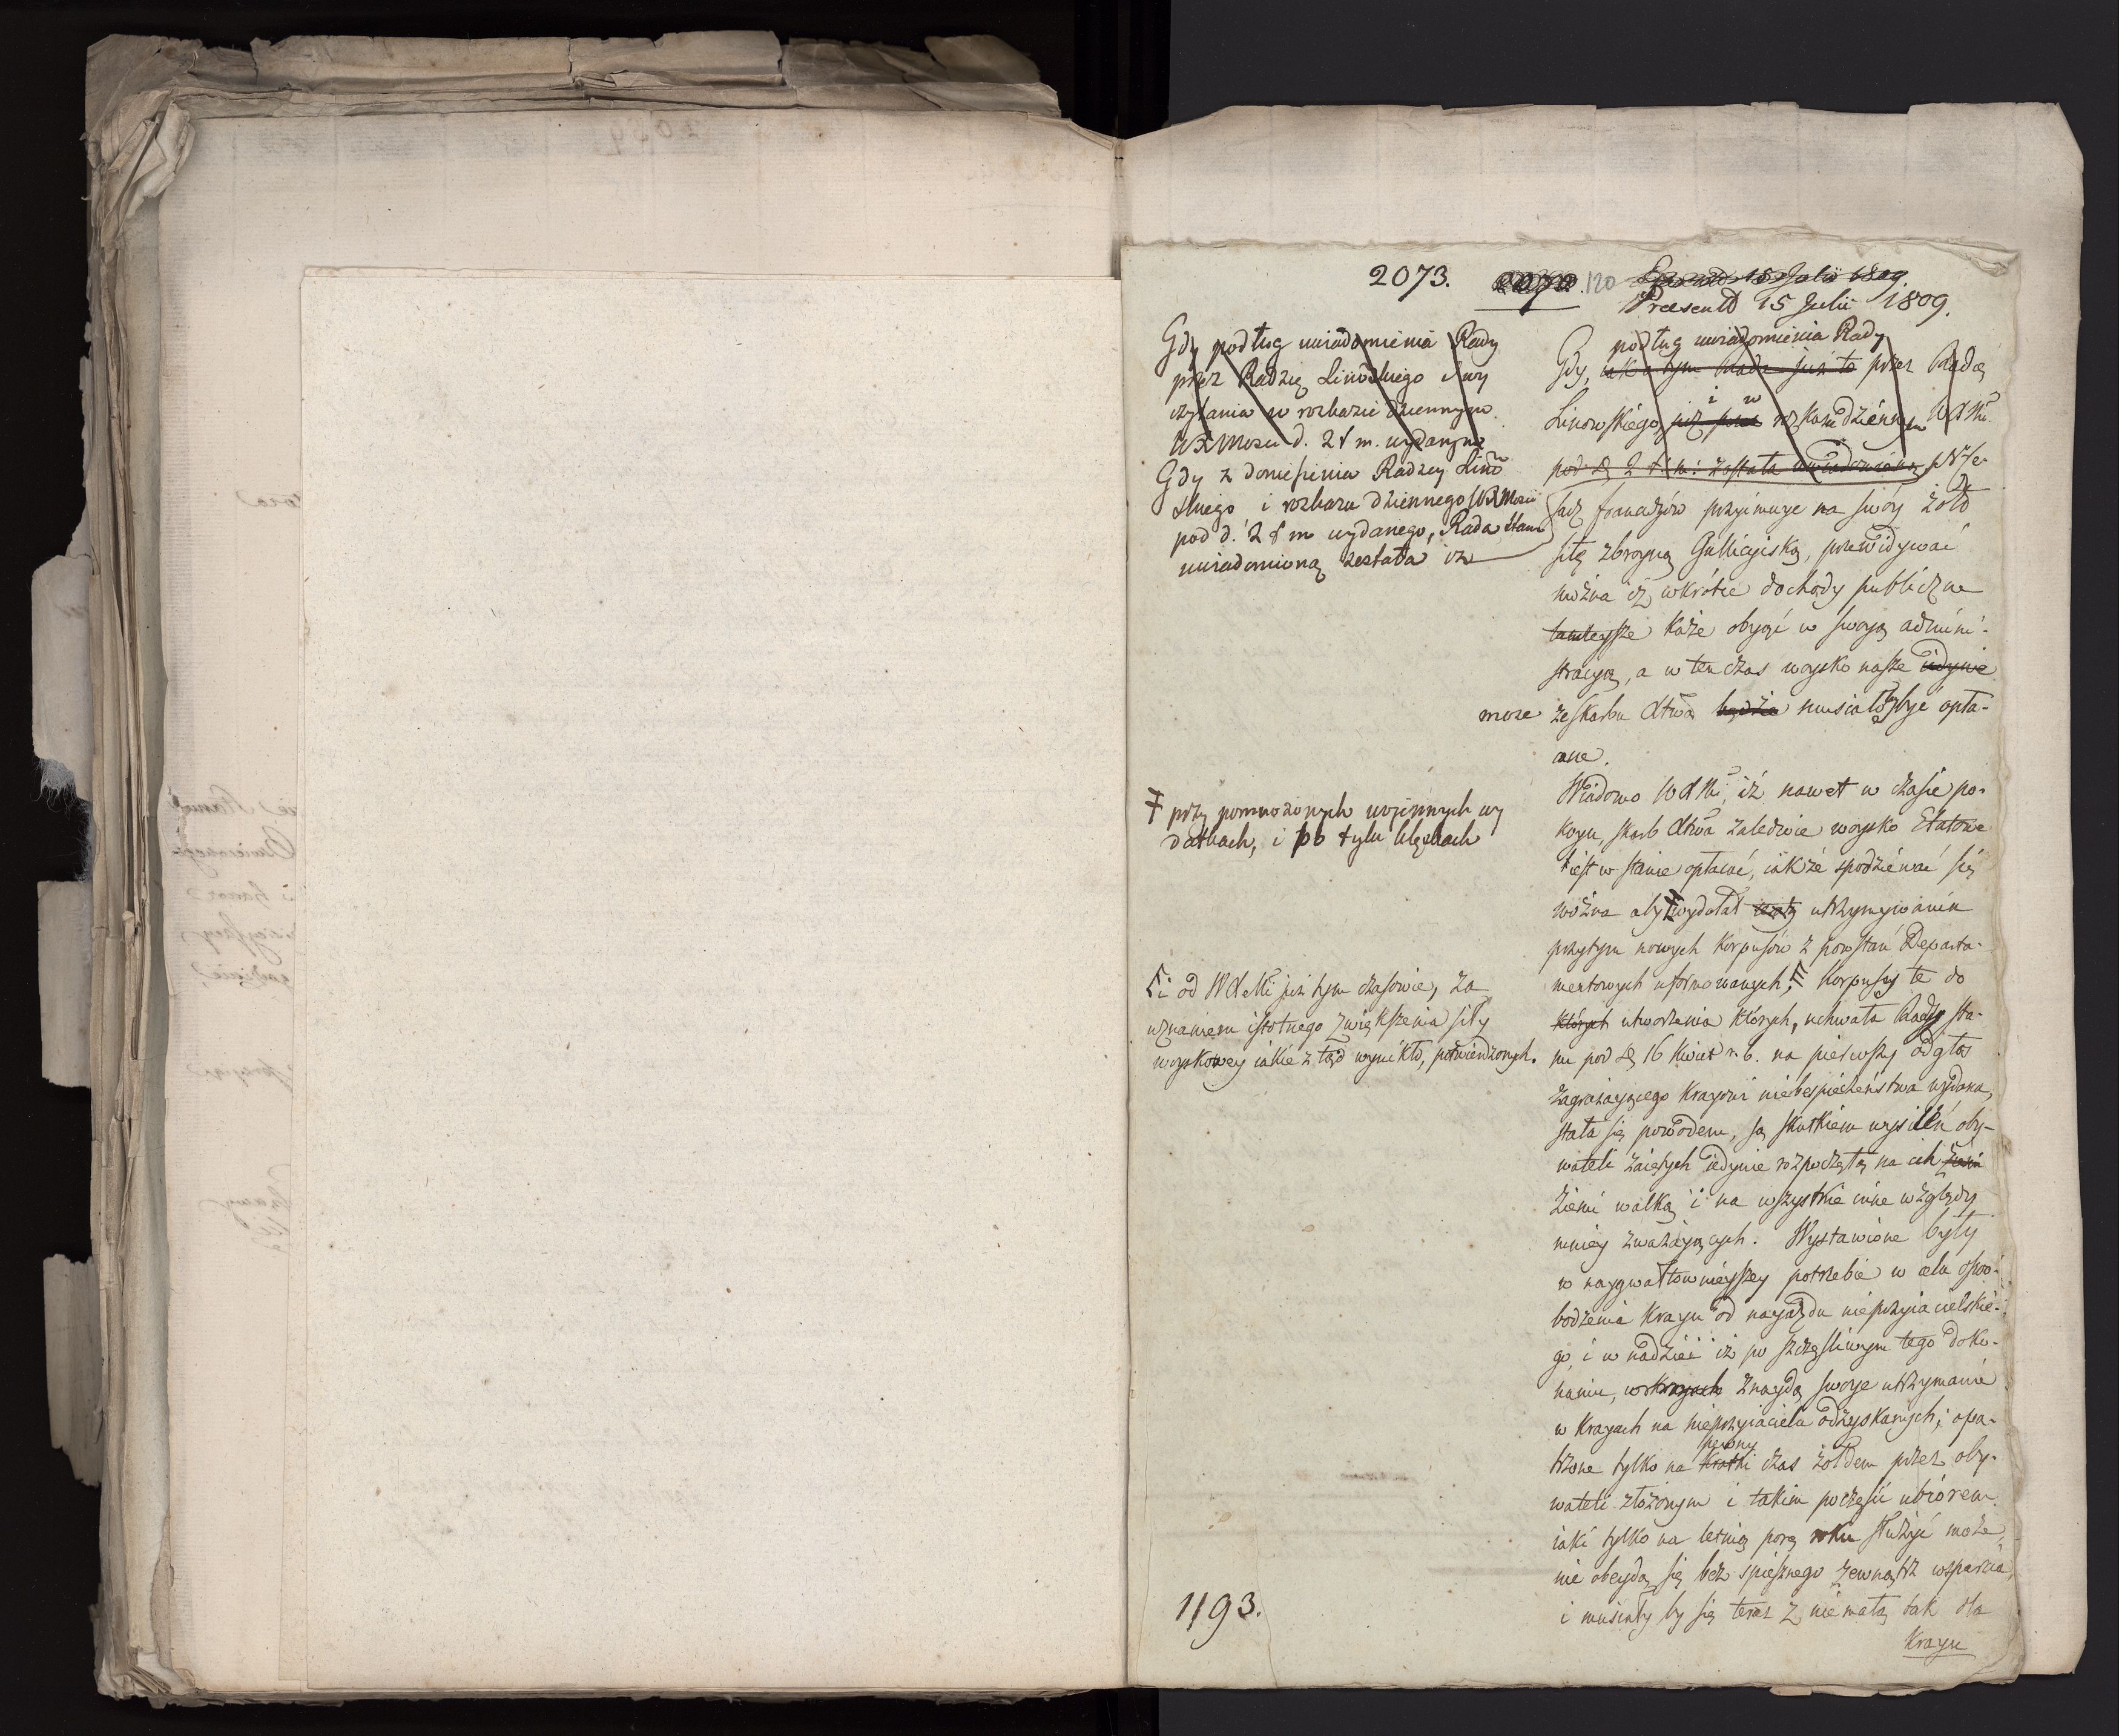 2073.
120
Praesentd 15 Julii 1809.
Gdy podług uwiadomienia Rady
przez Radzcę Linowskiego i wy
czytania w rozkazie dziennym
WXMosci d. 2 t m. wydanym
Gdy z doniesienia Radzcy Lino
skiego i rozkazu dziennego WXMosci
pod d. 2 t m wydanego, Rada Stanu
uwiadomioną została iż
podług uwiadomienia Rady
Gdy, przez Radcę
Linowskiego, i w rozkazie dziennym WXMci
pod d 2 t. m: została uwiadomiona
sarz Francuzów przyimuje na swóy żołd
siłę zbroyną Gallicyiską, przewidywać
można iż wkrótce dochody publiczne
tamteysze każe objąć w swoją admini-
stracyą, a w ten czas woysko nasze iedynie
może ze skarbu Xtwa będzie musiało być opła-
cane.
Wiadomo WXMci, iż nawet w czasie po-
koju skarb Xtwa zaledwie woysko Etatowe
iest w stanie opłacać, iakże spodziewać się
można aby wydołał utrzymywaniu
przytym nowych Korpusów z powstań Departa-
mentowych uformowanych, Korpusy te do
których utworzenia których, uchwała Rady Sta-
nu pod d 16 Kwiet r. b. na pierwszy odgłos
zagrażającego Krajowi niebespieczeństwa wydana,
stała się powodem, są skutkiem wysileń oby-
wateli zajętych iedynie rozpoczętą na ich
ziemi walką i na wszystkie inne względy
mniey zważających. Wystawione były
w naygwałtownieyszey potrzebie w celu oswo-
bodzenia Kraju od najazdu nieprzyiacielskie-
go, i w nadziei iż po szczęśliwym tego doko-
naniu, w Krajach znaydą swoje utrzymanie
w Krajach na nieprzyiacielu odzyskanych; opa-
pewny
trzone tylko na krótki czas żołdem przez oby-
wateli złożonym i takim poczęści ubiorem
iaki tylko na letnią porę roku służyć może,
nie obeydą się bez spiesznego zewnątrz wsparcia,
i musiały by się teraz z niemałą tak dla
Kraju
przy pomnożonych wojennych wy
datkach, i po tylu klęskach
i od WXMci już tym czasowie, za
uznaniem istotnego zwiększenia siły
woyskowey iakie z tąd wynikło, potwierdzonych.
1193.